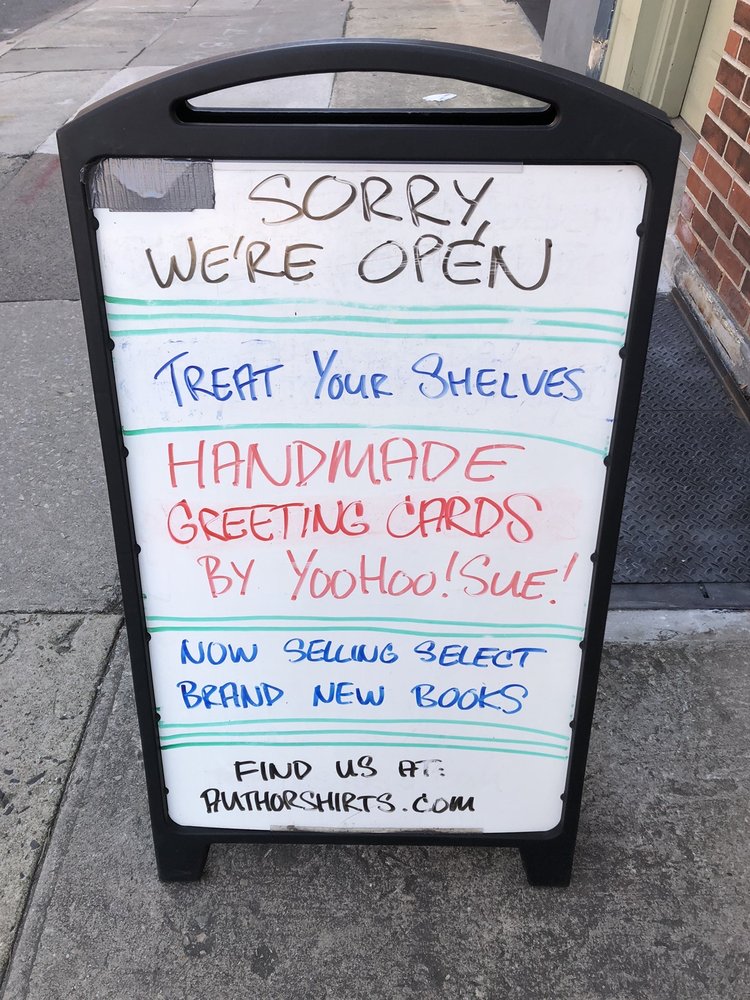 SORRY,
WE'RE OPEN
TREAT YOUR SHELVES
HANDMADE
GREETING CARDS
BY YOOHOO! SUE!
NOW SELLING SELECT
BRAND NEW BOOKS
FIND US AT:
AUTHORSHIRTS.COM